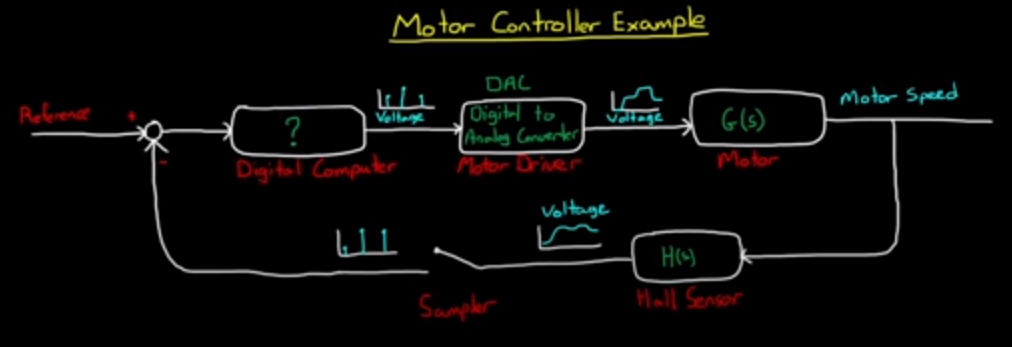 Motor Controller Example
Reference
+
-
?
Digital Computer
Voltage
DAC
Digital to
Analog Converter
Motor Driver
Voltage
G(s)
Motor
Motor Speed
Voltage
H(s)
Hall Sensor
Sampler